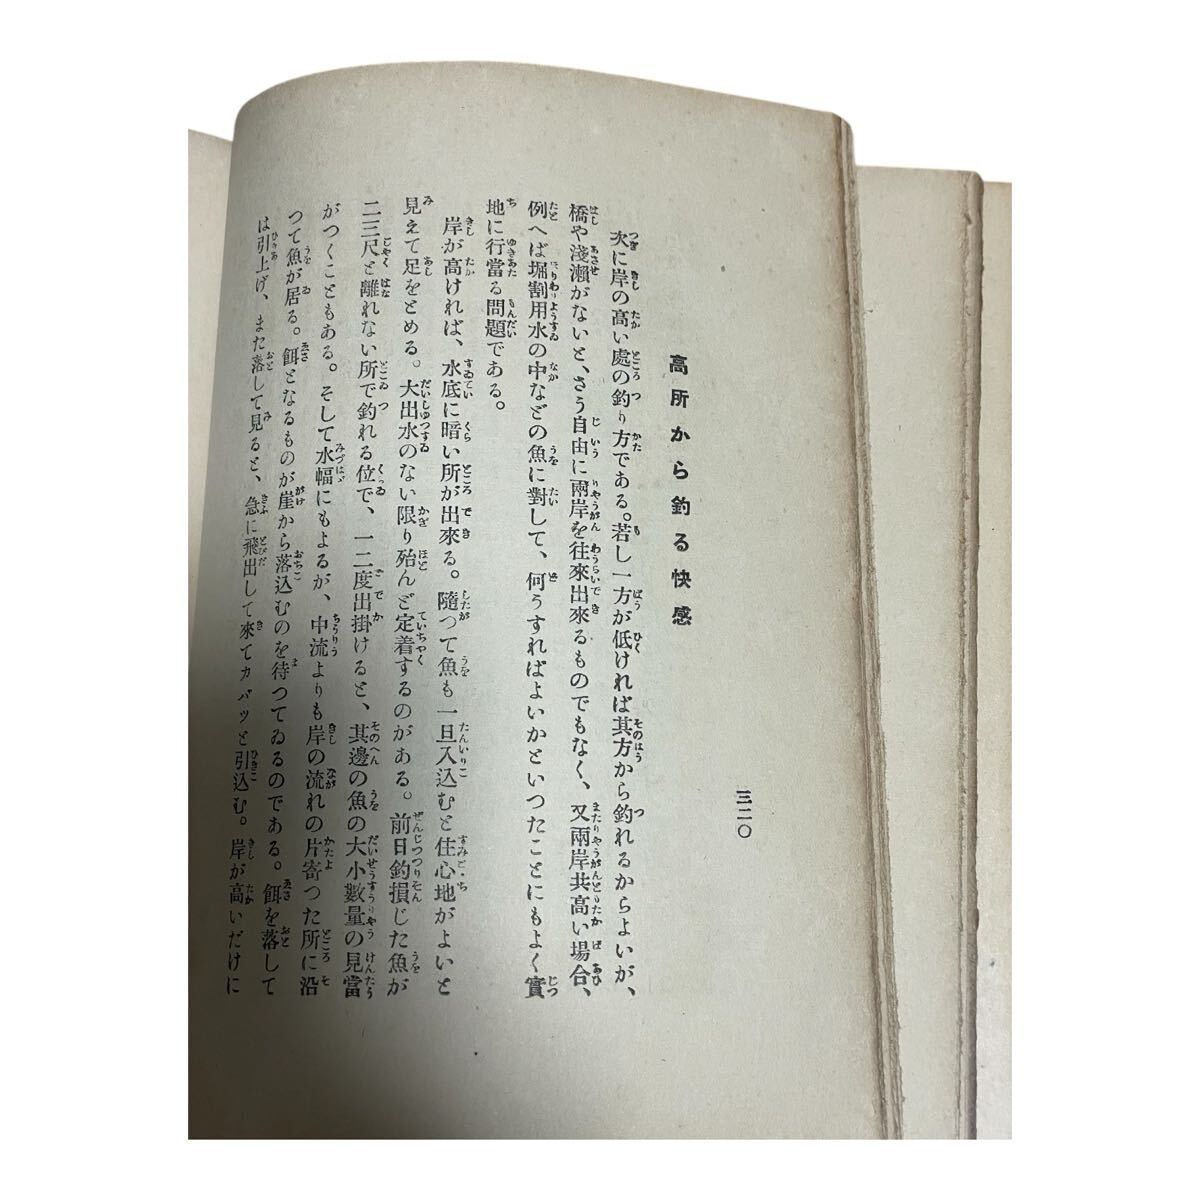 三二〇
高所から釣る快感
次に岸の高い處の釣り方である。若し一方が低ければ其方から釣れるからよいが、
橋や淺瀬がないと、さう自由に兩岸を往來出來るものでもなく、又兩岸共高い場合、
例へば堀割用水の中などの魚に對して、何うすればよいかといつたことにもよく實
地に行當る問題である。
岸が高ければ、水底に暗い所が出來る。隨つて魚も一旦入込むと住心地がよいと
見えて足をとめる。大出水のない限り殆んど定着するのがある。前日釣損じた魚が
二三尺と離れない所で釣れる位で、一二度出掛けると、其邊の魚の大小數量の見當
がつくこともある。そして水幅にもよるが、中流よりも岸の流れの片寄つた所に沿
つて魚が居る。餌となるものが崖から落込むのを待つてゐるのである。餌を落して
は引上げ、また落して見ると、急に飛出して來てカバッと引込む。岸が高いだけに